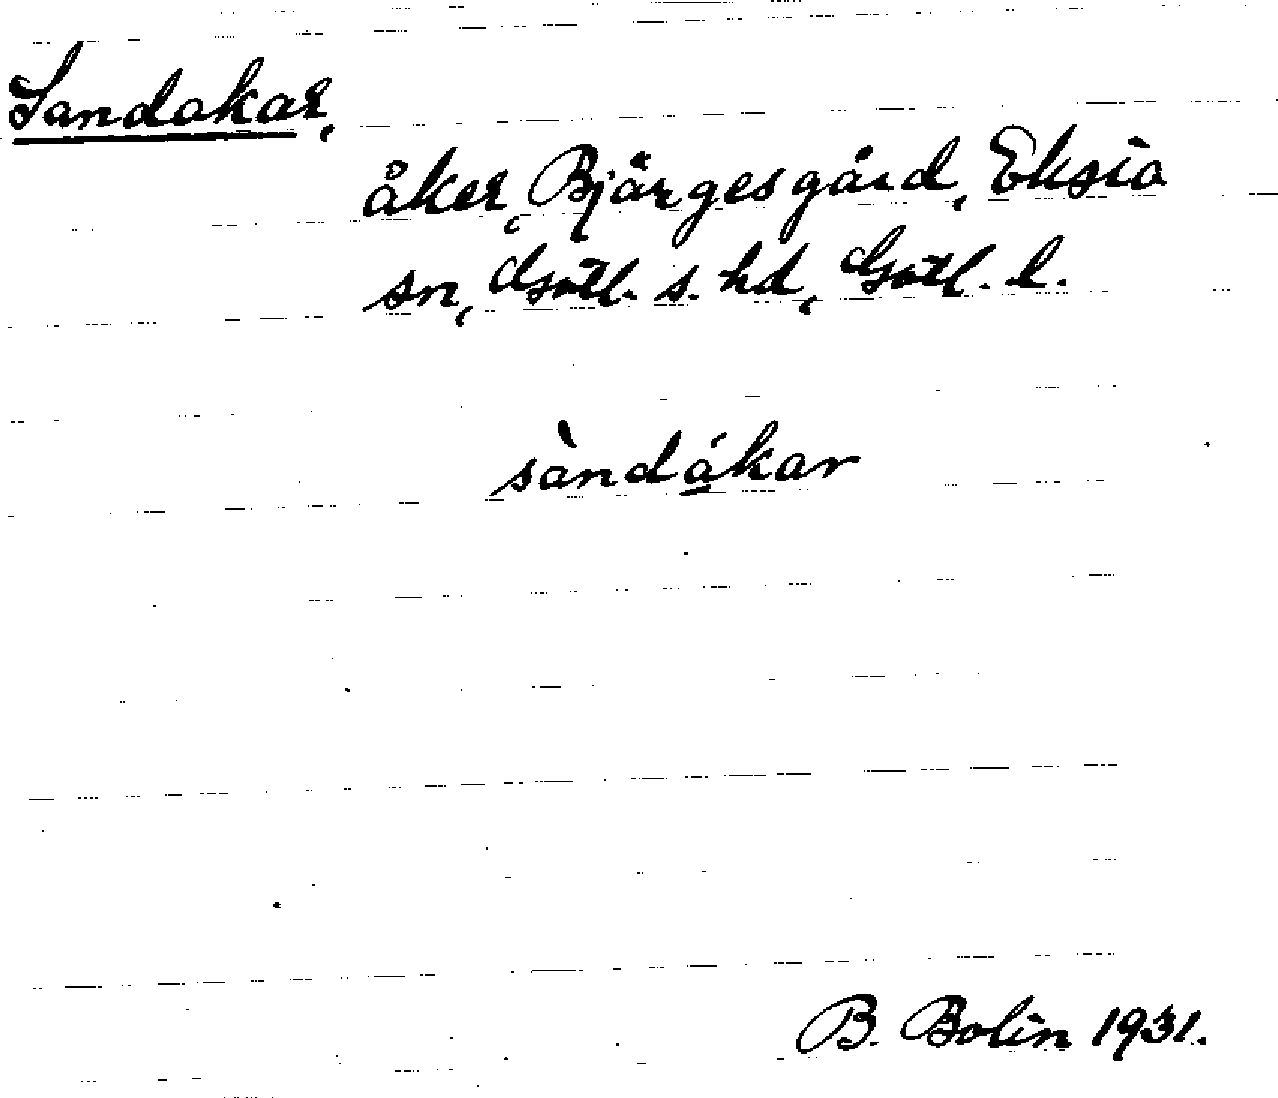 Sandakar,
åker, Bjärgesgård, Eksta
sn, Gotl. s. hd, Gotl. l.
sàndákar
B. Bolin 1931.